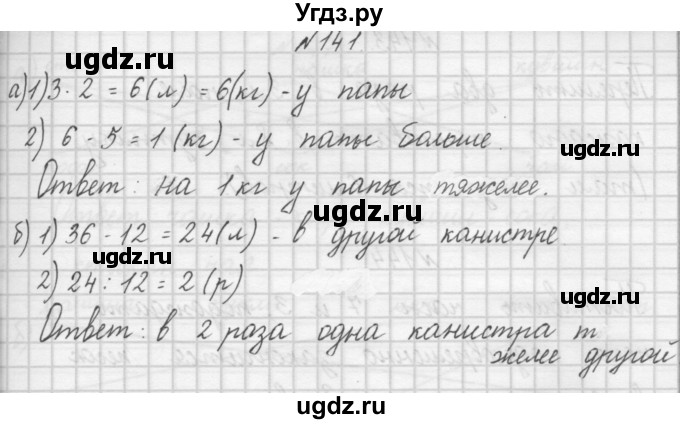 Угдз.ру
№141
а) 1) 3·2 = 6(л) = 6(кг) - у папы
ugdz.ru ugdz.ru
2) 6 - 5 = 1 (кг) - у папы больше.
ugdz.ru
Ответ: на 1кг у папы тяжелее.
ugdz.ru
б) 1) 36 - 12 = 24(л) - в другой канистре
ugdz.ru
2) 24 : 12 = 2 (р)
ugdz.ru
Ответ: в 2 раза одна канистра т
желее другой
ugdz.ru
ugdz.ru